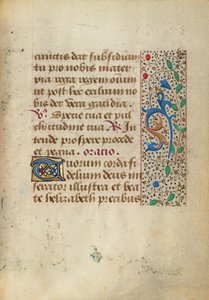 cunctis dat subsidium
tu pro nobis mater
pia roga regem omnium
ut post hec exilium no
bis det vera gaudia.
V. Specie tua et pul
chritudine tua. R. In
tende prospere procede
et regna. oratio.
Tuorum corda fi
delium deus mi
serator illustra et bea
te helizabeth precibus